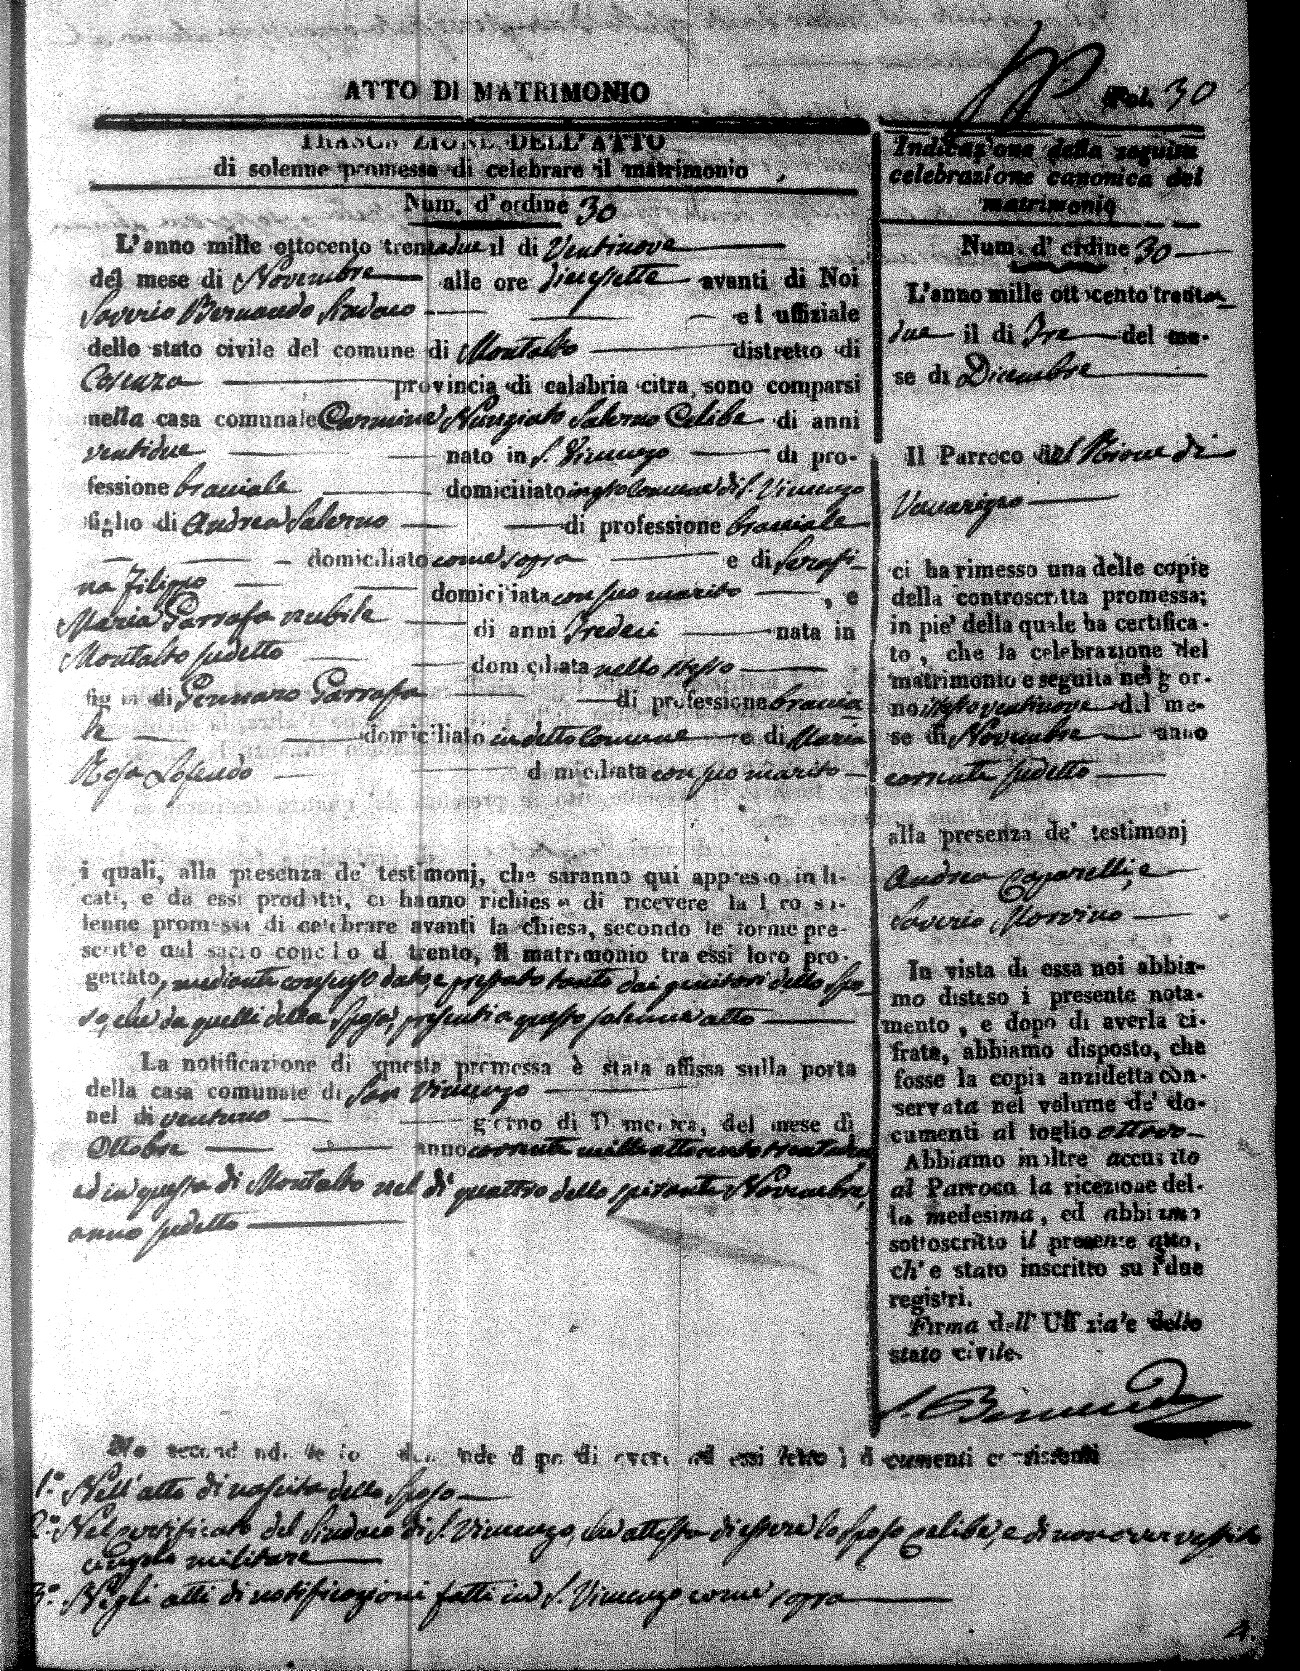 ATTO DI MATRIMONIO
Fol. 30
TRASCRIZIONE DELL'ATTO
di solenne promessa di celebrare il matrimonio
Num. d'ordine 30
L'anno mille ottocento trentadue il di Ventinove
del mese di Novembre alle ore diecisette avanti di Noi
Saverio Bernardo Sindaco ed uffiziale
dello stato civile del comune di Montalto distretto di
Cosenza provincia di calabria citra sono comparsi
nella casa comunale Carmine Nunziato Salerno Celibe di anni
ventidue nato in S. Vincenzo di pro-
fessione bracciale domiciliato in detto Comune di S. Vincenzo
figlio di Andrea Salerno di professione bracciale
domiciliato come sopra e di Serafi-
na Filippo domiciliata con suo marito, e
Maria Garrafa nubile di anni Tredeci nata in
Montalto sudetto domiciliata nello stesso
figlia di Gennaro Garrafa di professione braccia
le domiciliato in detto Comune e di Maria
Rosa Lofendo domiciliata con suo marito
i quali, alla presenza de' testimonj, che saranno qui appresso indi-
cati, e da essi prodotti, ci hanno richiesto di ricevere la loro so-
lenne promessa di celebrare avanti la chiesa, secondo le forme pre-
scritte dal sacro concilio di trento, il matrimonio tra essi loro pro-
gettato, mediante consenso dato, e prestato tanto dai genitori dello Spo-
so, che da quelli della Sposa, presenti a questo solenne atto
La notificazione di questa promessa è stata affissa sulla porta
della casa comunale di San Vincenzo
nel di ventuno giorno di Domenica, del mese di
Ottobre anno corrente mille ottocento trentadue
ed in questa di Montalto nel di quattro dello spirante Novembre,
anno sudetto
Indicazione della seguita
celebrazione canonica del
matrimonio
Num. d'ordine 30
L'anno mille ottocento trenta
due il di Tre del me-
se di Dicembre
Il Parroco del Rione di
Vaccarizzo
ci ha rimesso una delle copie
della controscritta promessa;
in pie' della quale ha certifica-
to, che la celebrazione del
matrimonio e seguita nel gior-
no istesso ventinove del me-
se di Novembre anno
corrente sudetto
alla presenza de' testimonj
Andrea Caparelli, e
Saverio Morvino
In vista di essa noi abbia-
mo disteso il presente nota-
mento, e dopo di averla ci-
frata, abbiamo disposto, che
fosse la copia anzidetta con-
servata nel volume de' do-
cumenti al foglio ottavo
Abbiamo inoltre accusato
al Parroco la ricezione del-
la medesima, ed abbiamo
sottoscritto il presente atto,
ch'e stato inscritto su i due
registri.
Firma dell' Uffiziale dello
stato civile.
S. Bernardo
No secondando le loro domande dopo di avere ad essi letto i documenti consistenti
1.° Nell'atto di nascita dello Sposo
2.° Nel certificato del Sindaco di S. Vincenzo, che attesta di essere lo Sposo celibe, e di non aver vestito
cingolo militare
3.° Negli atti di notificazioni fatti in S. Vincenzo come sopra
4.